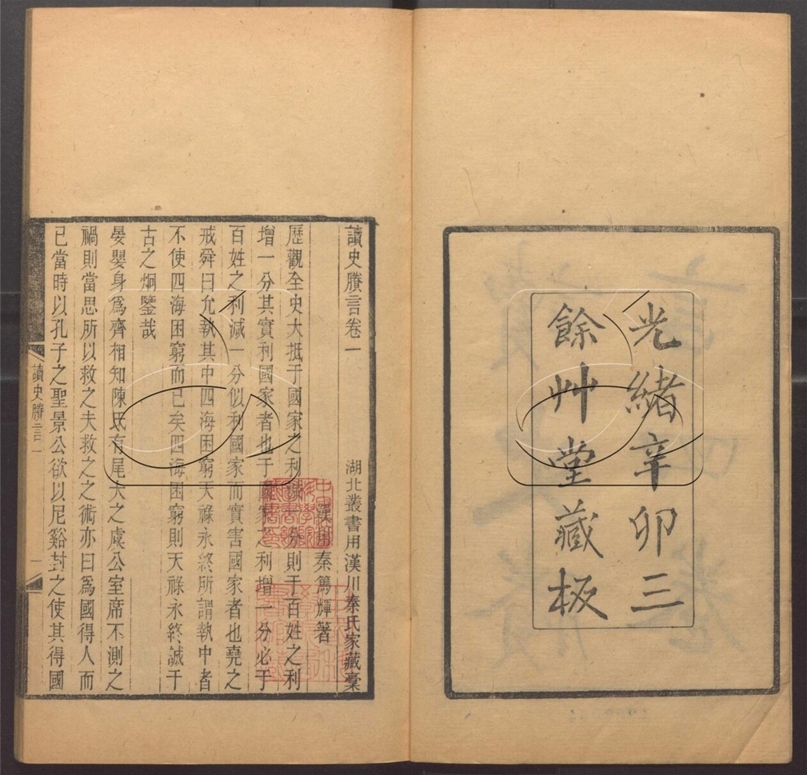 光緒辛卯三
餘艸堂藏板
讀史賸言卷一
湖北叢書用漢川秦氏家藏槀
漢川秦篤輝著
歷觀全史大抵于國家之利減一分則于百姓之利
增一分其實利國家者也于國家之利增一分必于
百姓之利減一分似利國家而實害國家者也堯之
戒舜曰允執其中四海困窮天祿永終所謂執中者
不使四海困窮而已矣四海困窮則天祿永終誠千
古之炯鑒哉
晏嬰身爲齊相知陳氏有尾大之虞公室席不測之
禍則當思所以救之夫救之之術亦曰爲國得人而
已當時以孔子之聖景公欲以尼谿封之使其得國
讀史賸言一
一